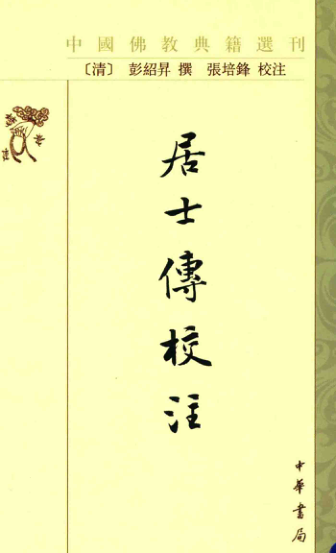 中國佛教典籍選刊
〔清〕 彭紹昇 撰 張培鋒 校注
居士傳校注
中華書局